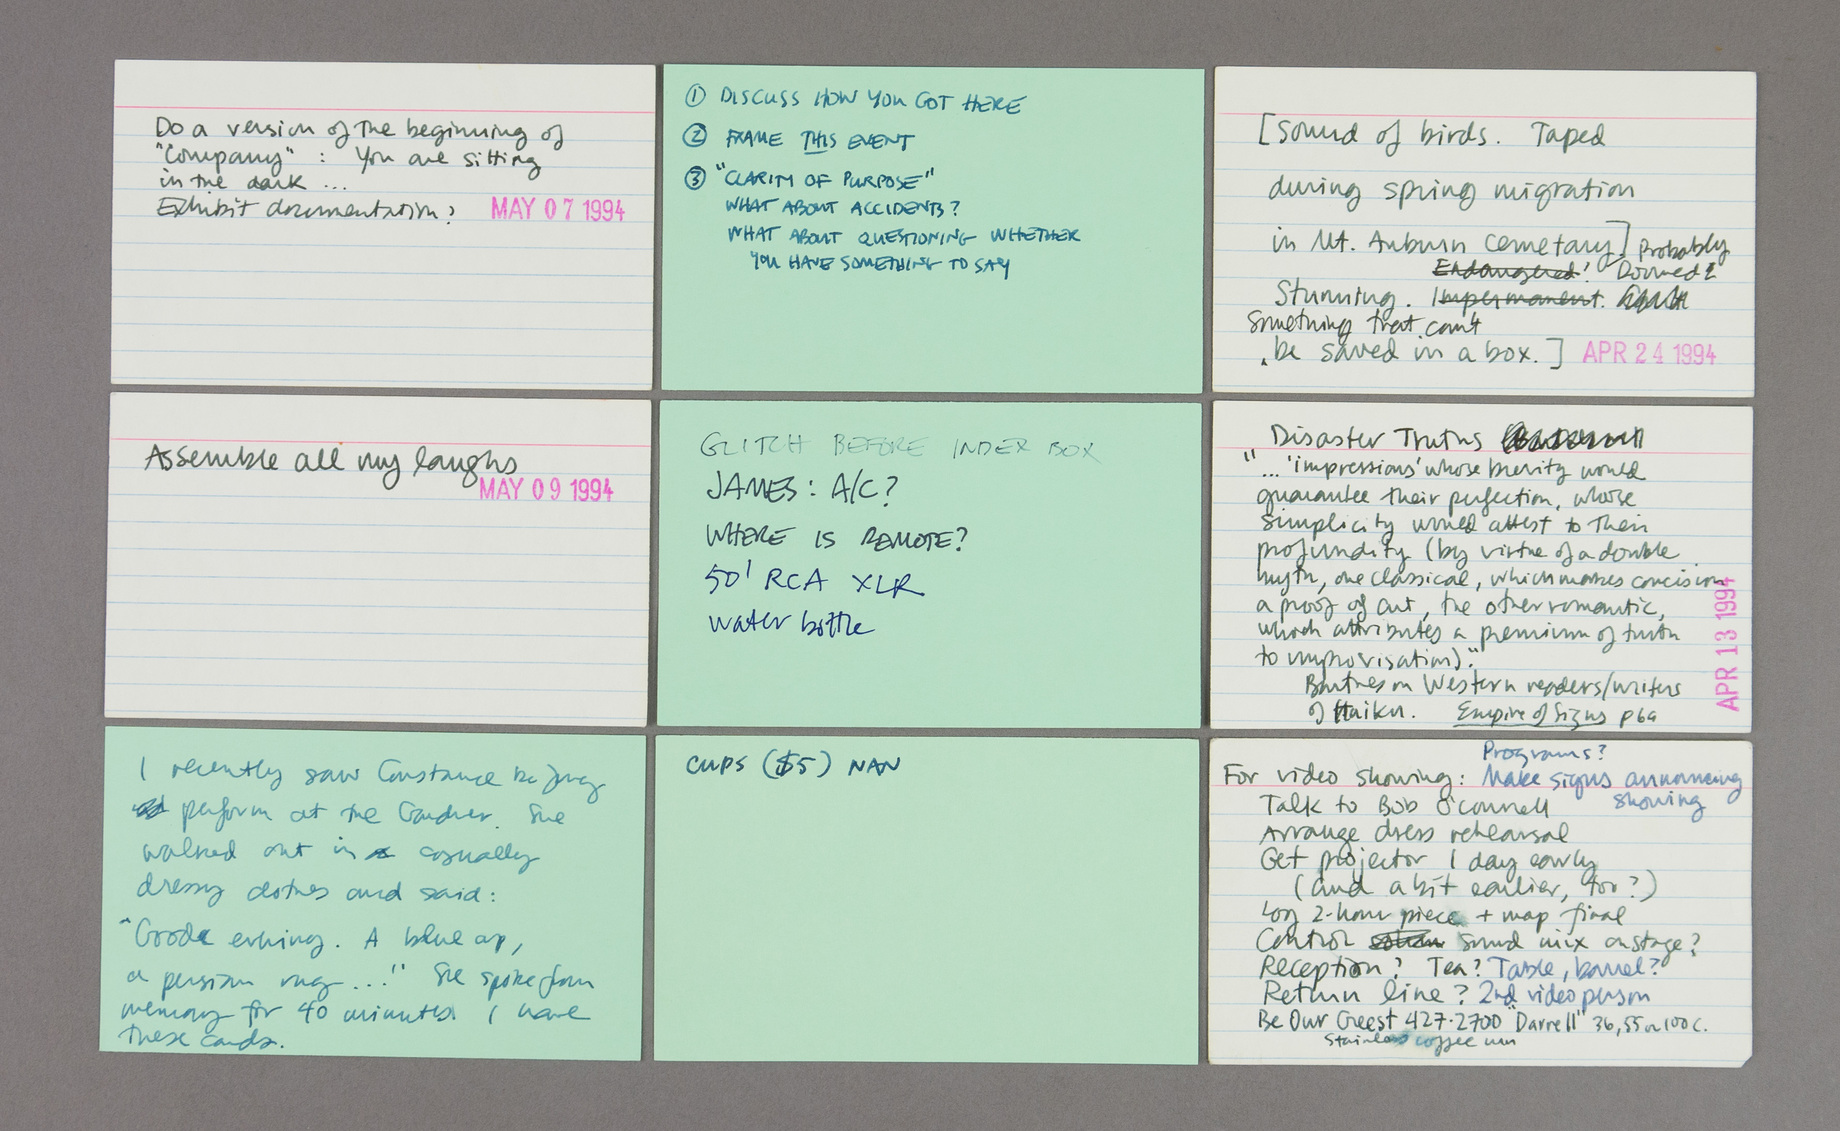 Do a version of the beginning of
"Company" : You are sitting
in the dark ...
Exhibit documentation?
MAY 07 1994
① DISCUSS HOW YOU GOT HERE
② FRAME THIS EVENT
③ "CLARITY OF PURPOSE"
WHAT ABOUT ACCIDENTS?
WHAT ABOUT QUESTIONING WHETHER
YOU HAVE SOMETHING TO SAY
[Sound of birds. Taped
during spring migration
in Mt. Auburn Cemetary] Probably
Endangered! Doomed?
Stunning. Impermanent.
Something that can't
be saved in a box.]
APR 24 1994
Assemble all my laughs
MAY 09 1994
GLITCH BEFORE INDEX BOX
JAMES: A/C?
WHERE IS REMOTE?
50' RCA XLR
water bottle
Disaster Truths
"...'impressions' whose brevity would
guarantee their perfection, whose
simplicity would attest to their
profundity (by virtue of a double
myth, one classical, which makes concision
a proof of art, the other romantic,
which attributes a premium of truth
to improvisation)."
Barthes on Western readers/writers
of Haiku. Empire of Signs p69
APR 13 1994
I recently saw Constance DeJong
perform at the Gardner. She
walked out in casually
dressy clothes and said:
"Good evening. A blue cup,
a persian rug ..." She spoke from
memory for 40 minutes. I have
these cards.
CUPS ($5) NAN
Programs?
For video showing: Make signs announcing
showing
Talk to Bob O'Connell
Arrange dress rehearsal
Get projector 1 day early
(and a bit earlier, too?)
Log 2-hour piece + map final
Control sound mix onstage?
Reception? Tea? Table, barrel?
Return line? 2nd video person
Be Our Guest 427-2700 "Darrell" 36, 55 or 100 c.
Stainless coffee urn